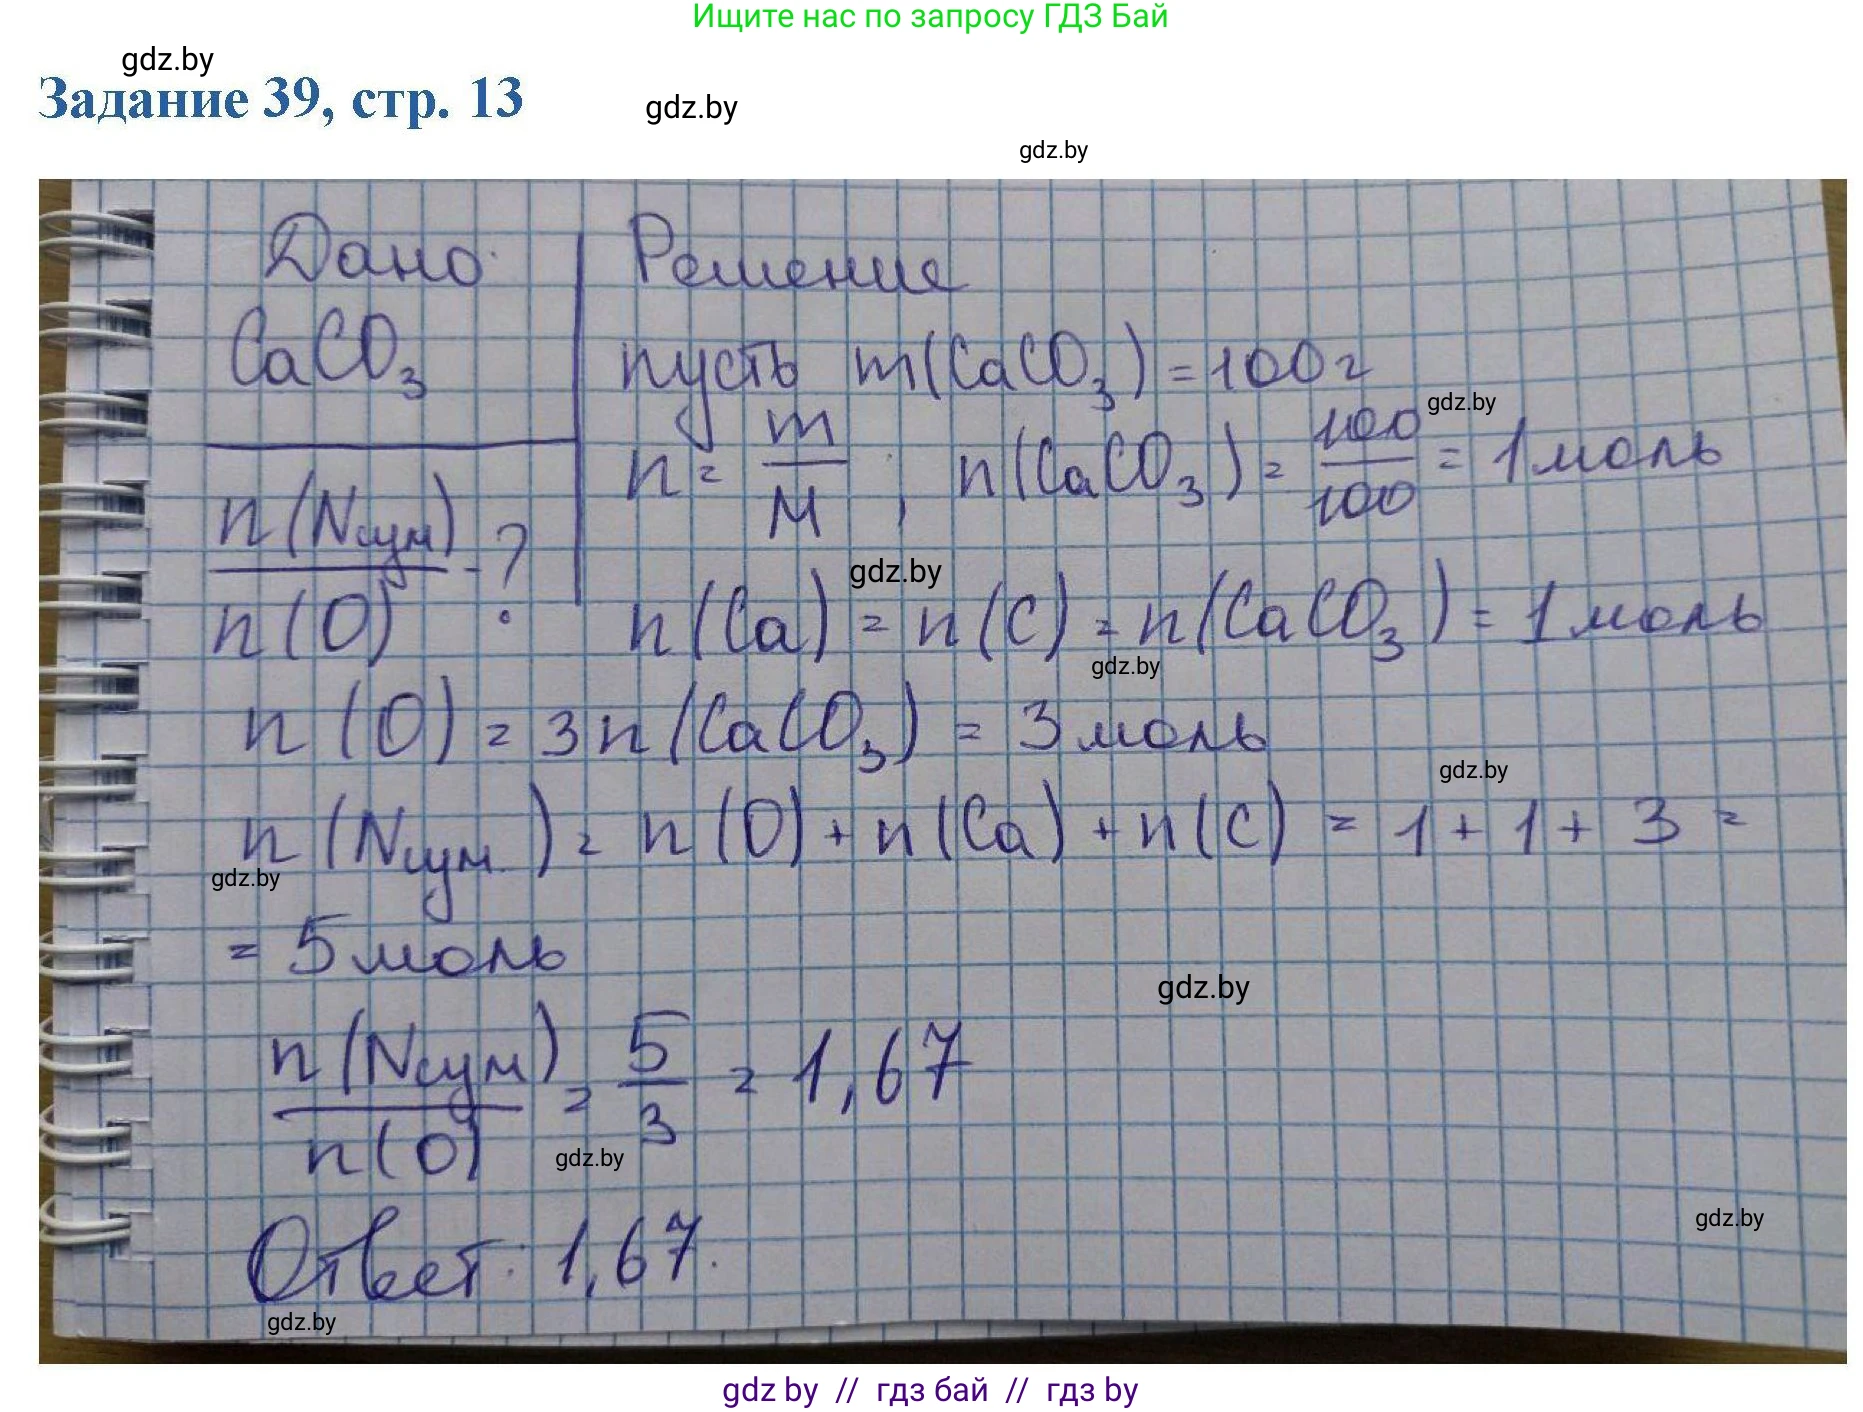 Ищите нас по запросу ГДЗ Бай
gdz.by
Задание 39, стр. 13
gdz.by
gdz.by
Дано:
CaCO₃
n(Nсум)
n(O)
- ?
Решение
пусть m(CaCO₃) = 100г
gdz.by
n = m/M , n(CaCO₃) = 100/100 = 1моль
gdz.by
n(Ca) = n(C) = n(CaCO₃) = 1моль
gdz.by
n(O) = 3n(CaCO₃) = 3моль
gdz.by
n(Nсум.) = n(O) + n(Ca) + n(C) = 1 + 1 + 3 =
gdz.by
= 5моль
gdz.by
n(Nсум)/n(O) = 5/3 = 1,67
gdz.by
gdz.by
Ответ: 1,67.
gdz.by
gdz by // гдз бай // гдз by